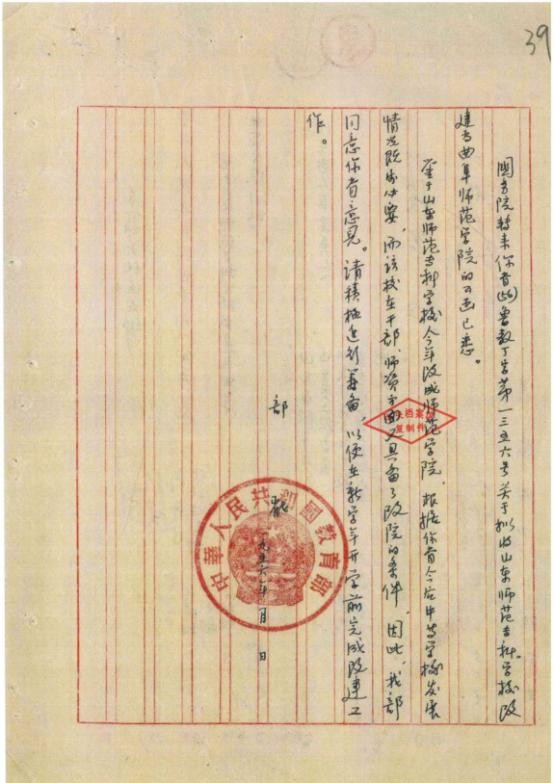 39
国务院转来你省(56)鲁教丁字第一三五六号关于拟将山东师范专科学校改
建为曲阜师范学院的函已悉。
鉴于山东师范专科学校今年改成师范学院，根据你省今后中等学校发展
情况既属必要，而该校在干部、师资方面又具备了改院的条件，因此，我部
同意你省意见。请积极进行筹备，以便在新学年开学前完成改建工
作。
部
一九五六年 月 日
中華人民共和國教育部
档案
复制件